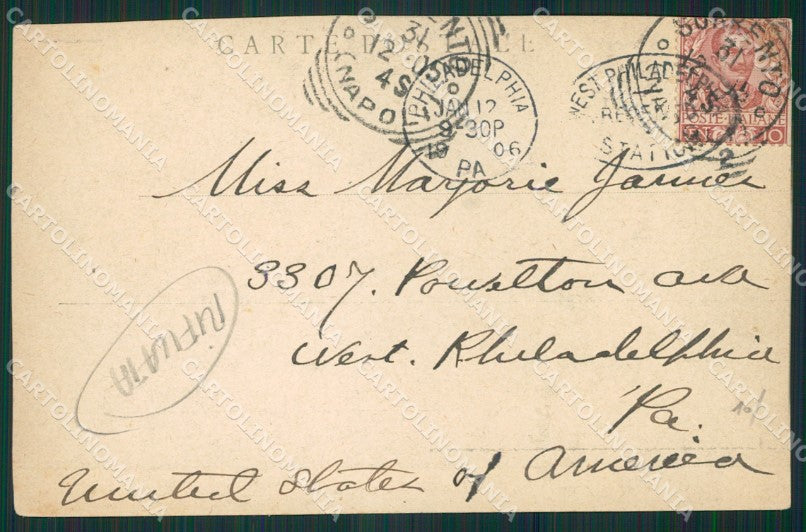 CARTE POSTALE
SORRENTO
31
12 05
4S
(NAPOLI)
PHILADELPHIA
JAN 12
9-30P
19 06
PA
WEST PHILADELPHIA
STATION
SORRENTO
31
4S
POSTE ITALIANE
Miss Marjorie
3307. Powelton Ave
West. Philadelphia
Pa.
United States of America
CARTOLINOMANIA